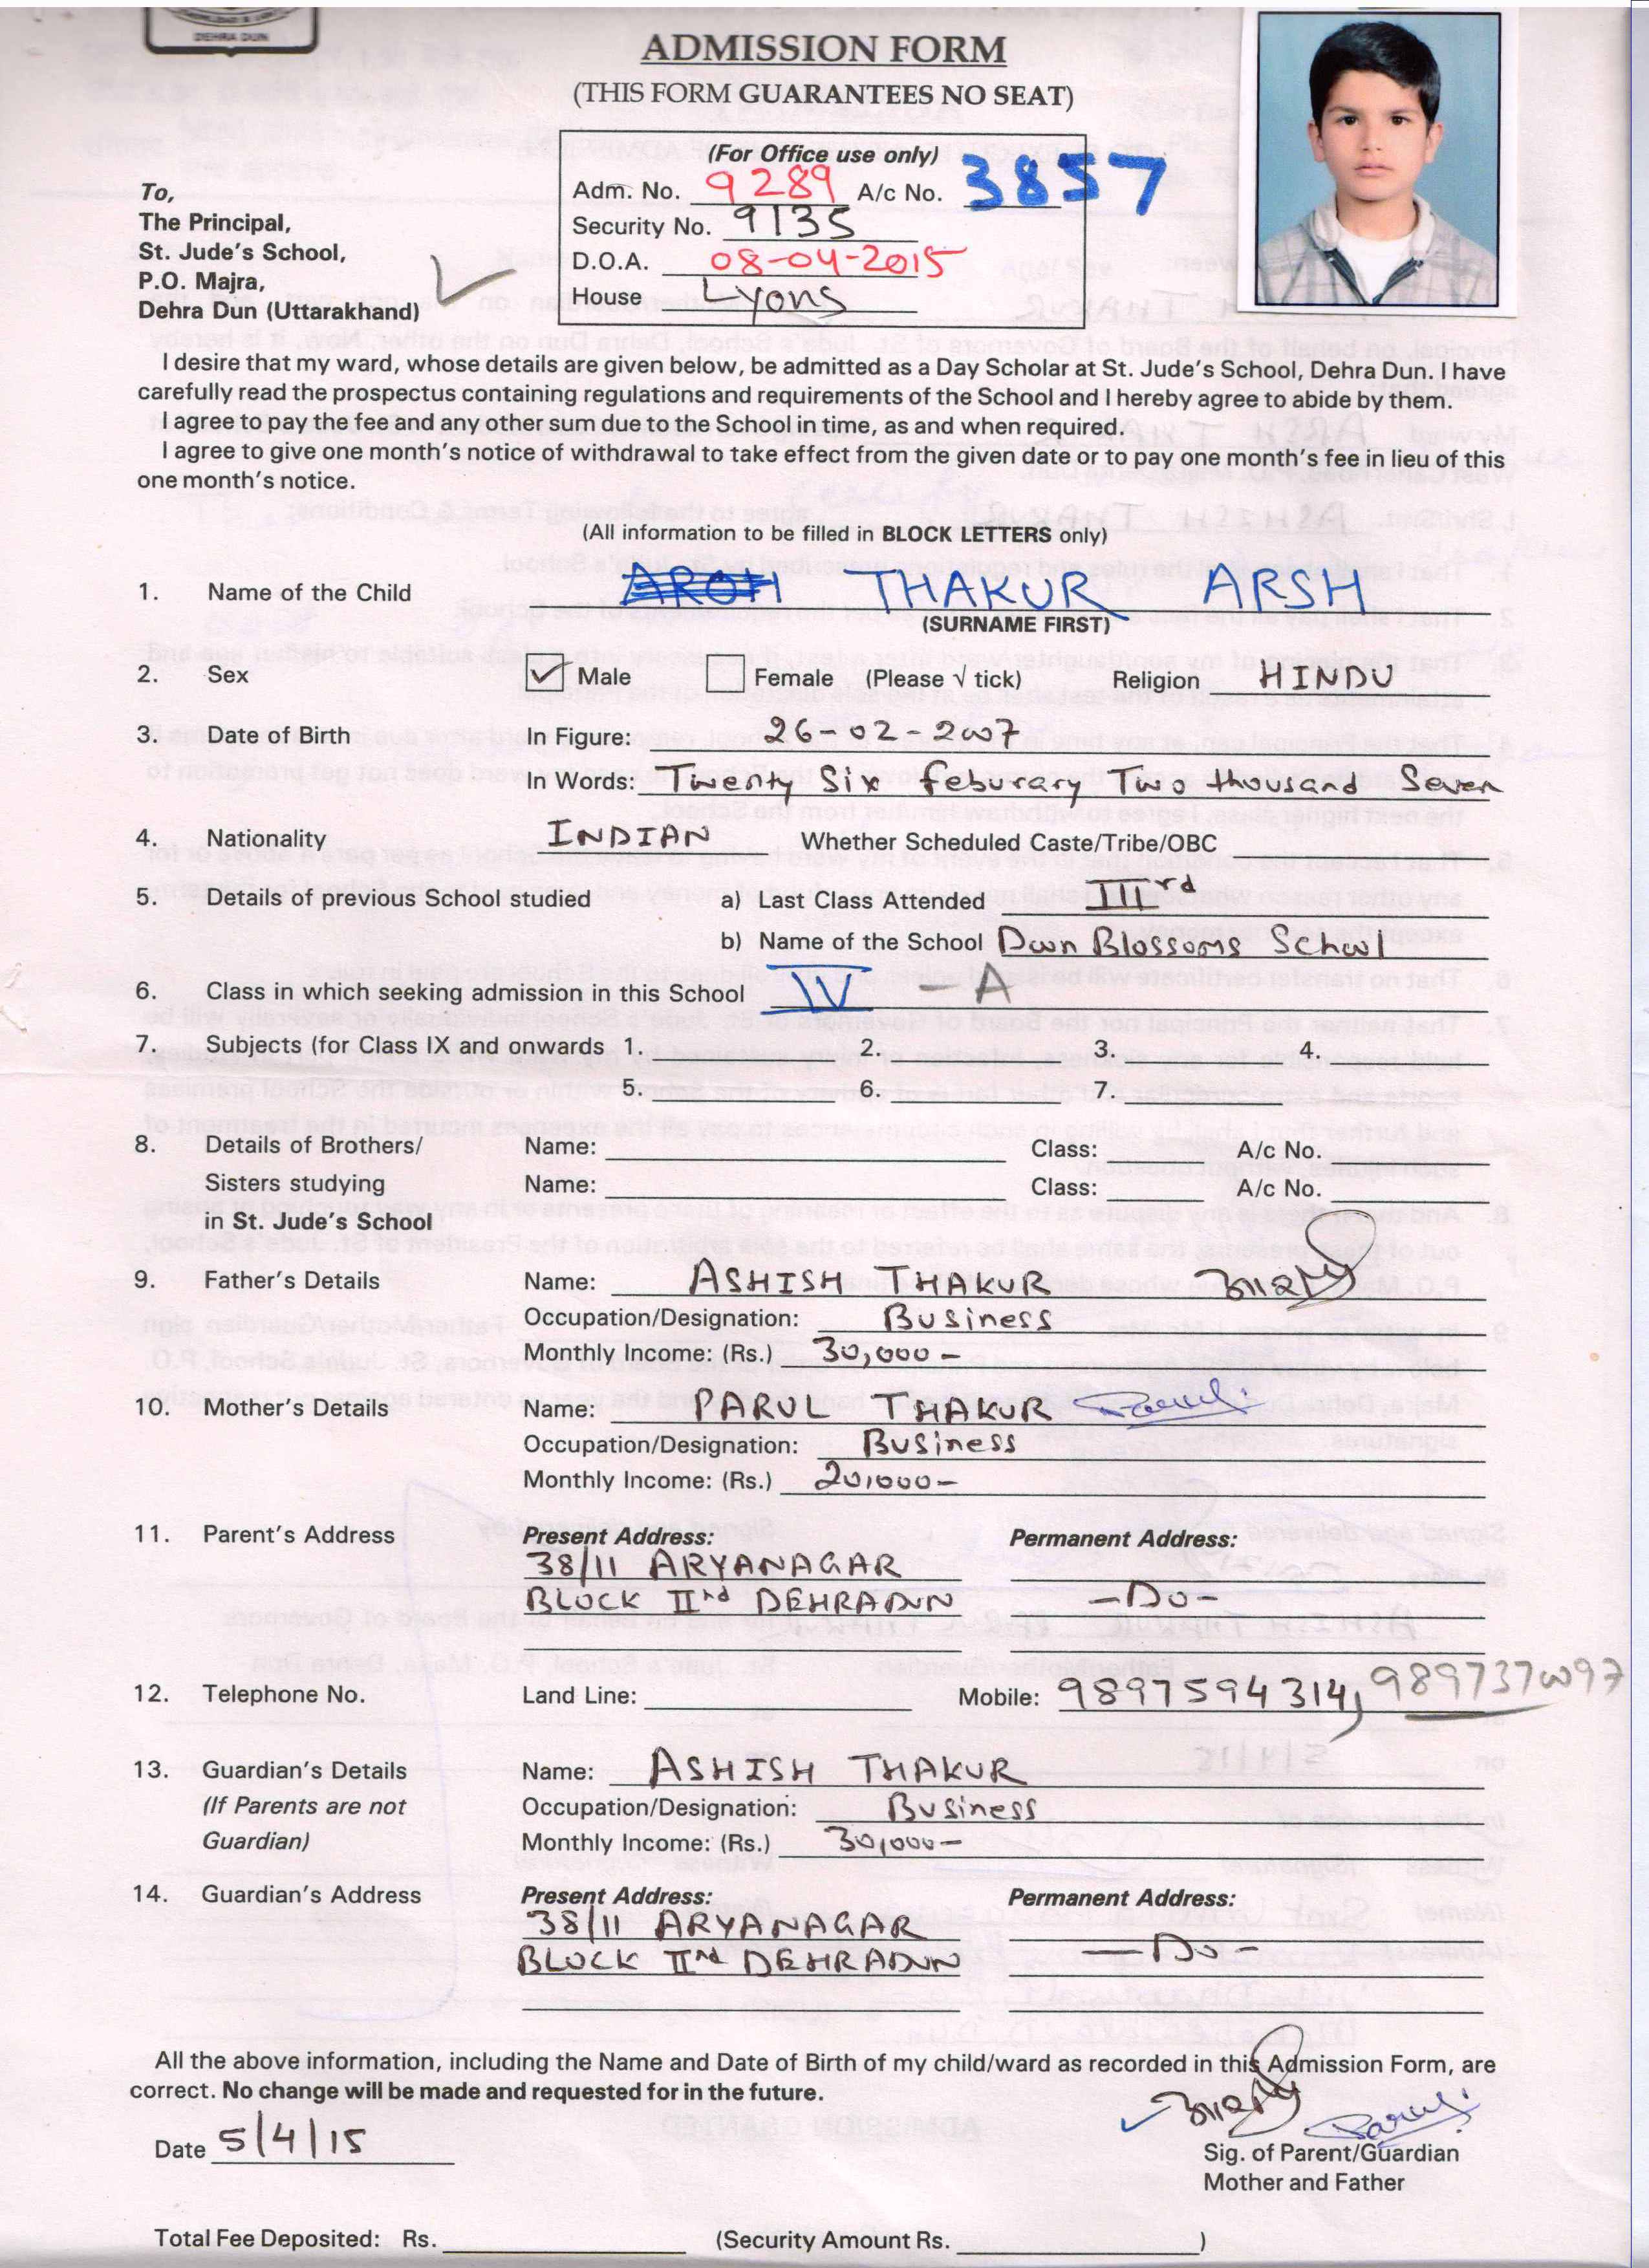 DEHRA DUN
ADMISSION FORM
(THIS FORM GUARANTEES NO SEAT)
(For Office use only)
Adm. No. 9289 A/c No. 3857
Security No. 9135
D.O.A. 08-04-2015
House Lyons
To,
The Principal,
St. Jude's School,
P.O. Majra,
Dehra Dun (Uttarakhand)
I desire that my ward, whose details are given below, be admitted as a Day Scholar at St. Jude's School, Dehra Dun. I have
carefully read the prospectus containing regulations and requirements of the School and I hereby agree to abide by them.
I agree to pay the fee and any other sum due to the School in time, as and when required.
I agree to give one month's notice of withdrawal to take effect from the given date or to pay one month's fee in lieu of this
one month's notice.
(All information to be filled in BLOCK LETTERS only)
1. Name of the Child THAKUR ARSH
(SURNAME FIRST)
2. Sex ✓ Male Female (Please √ tick) Religion HINDU
3. Date of Birth In Figure: 26-02-2007
In Words: Twenty Six Feburary Two thousand Seven
4. Nationality INDIAN Whether Scheduled Caste/Tribe/OBC
5. Details of previous School studied a) Last Class Attended IIIrd
b) Name of the School Doon Blossoms School
6. Class in which seeking admission in this School IV - A
7. Subjects (for Class IX and onwards 1. 2. 3. 4.
5. 6. 7.
8. Details of Brothers/ Name: Class: A/c No.
Sisters studying Name: Class: A/c No.
in St. Jude's School
9. Father's Details Name: ASHISH THAKUR
Occupation/Designation: Business
Monthly Income: (Rs.) 30,000 -
10. Mother's Details Name: PARUL THAKUR Parul
Occupation/Designation: Business
Monthly Income: (Rs.) 20,000 -
11. Parent's Address Present Address: Permanent Address:
38/11 ARYANAGAR
BLOCK IInd DEHRADUN -Do-
12. Telephone No. Land Line: Mobile: 9897594314, 9897370097
13. Guardian's Details Name: ASHISH THAKUR
(If Parents are not Occupation/Designation: Business
Guardian) Monthly Income: (Rs.) 30,000 -
14. Guardian's Address Present Address: Permanent Address:
38/11 ARYANAGAR
BLOCK IInd DEHRADUN -Do-
All the above information, including the Name and Date of Birth of my child/ward as recorded in this Admission Form, are
correct. No change will be made and requested for in the future.
Parul
Date 5/4/15
Sig. of Parent/Guardian
Mother and Father
Total Fee Deposited: Rs. (Security Amount Rs. )